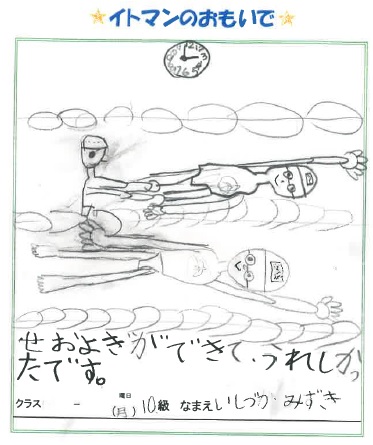 イトマンのおもいで
せおよぎができて、うれしかっ
たです。
クラス - 曜日 (月) 10級 なまえ いしづか みずき